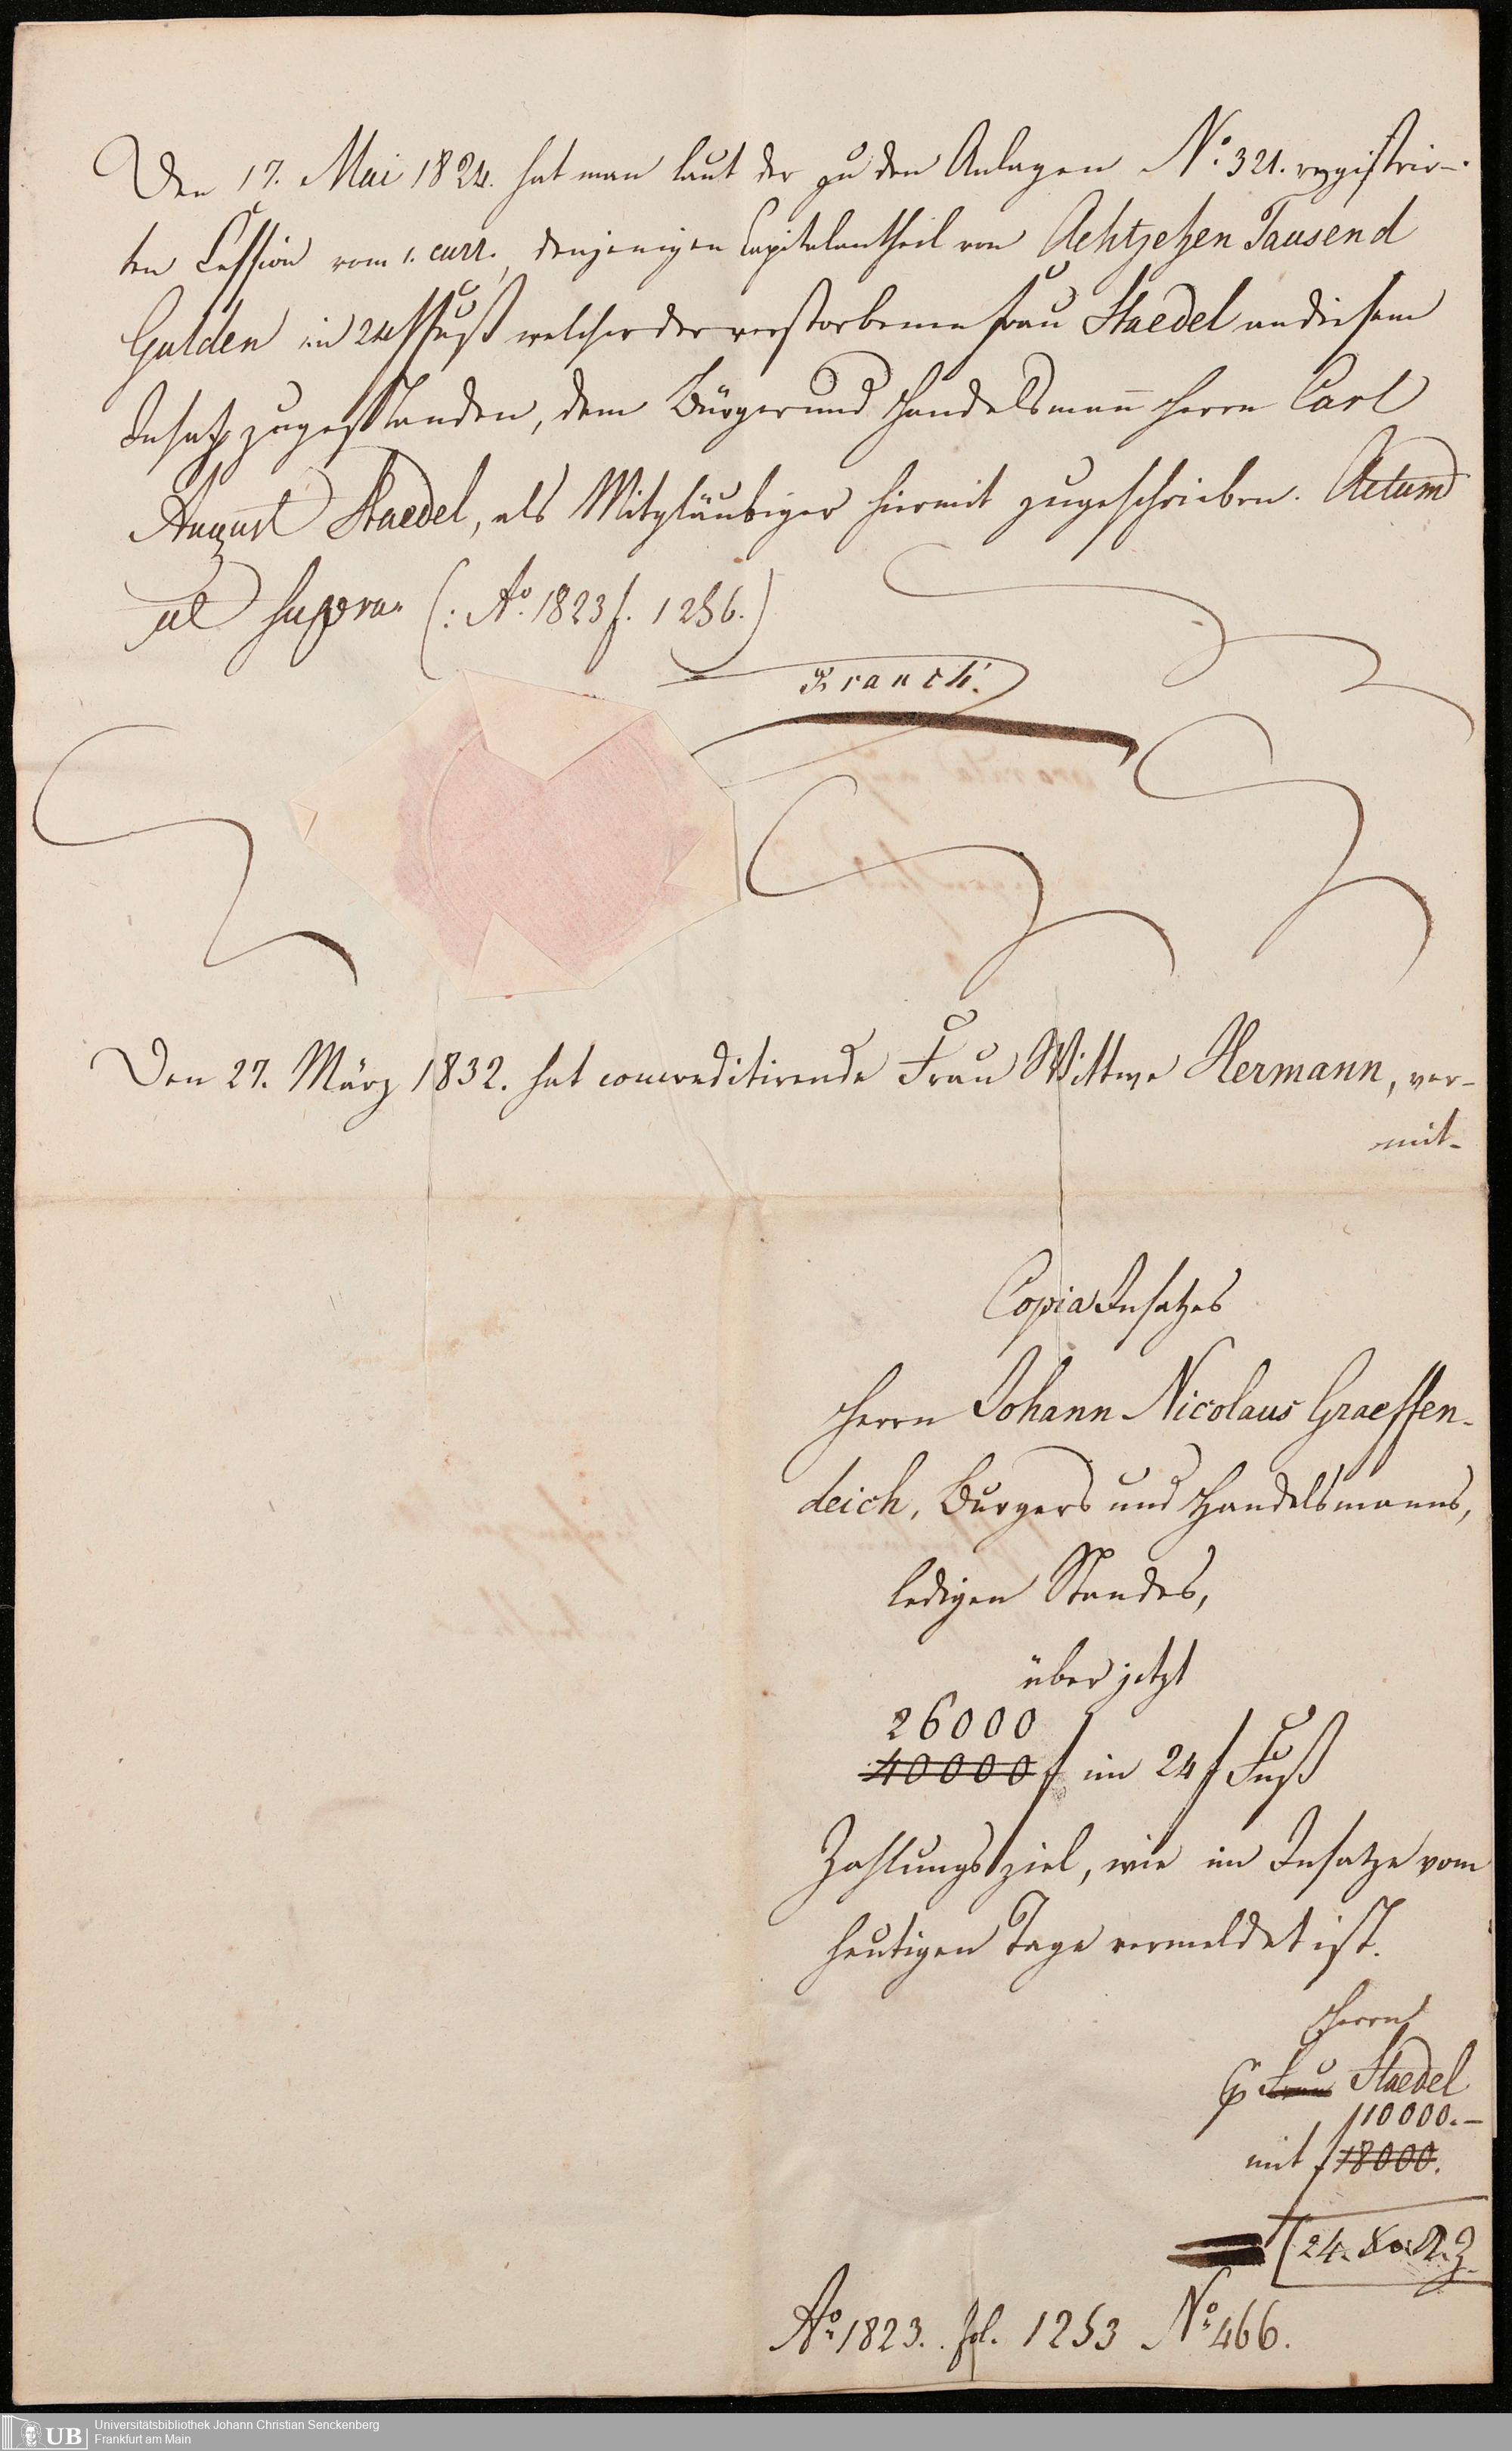 Den 17. Mai 1824. hat man laut der zu den Anlagen No. 321. registrir-
ten Cession vom 1. curr., denjenigen Capitalantheil von Achtzehen Tausend
Gulden in 24 f Fuß welcher der verstorbenen Frau Staedel an diesem
Insatz zugestanden, dem Bürger und Handelsmann Herrn Carl
August Staedel, als Mitgläubiger hiermit zugeschrieben. Actum
ut supra. (: Ao. 1823 f. 1256.)
Den 27. März 1832. hat concreditirende Frau Wittwe Hermann, ver-
mit-
Copia Insatzes
Herrn Johann Nicolaus Graeffen-
deich, Burgers und Handelsmanns,
ledigen Standes,
über jetzt
26000
40000 f im 24 f Fuß
Zahlungsziel, wie im Insatze vom
heutigen Tage vermeldet ist.
Herrn
Frau Staedel
f 10000.-
mit f 18000.
Ao. 1823. fol. 1253 No. 466.
UB
Universitätsbibliothek Johann Christian Senckenberg
Frankfurt am Main